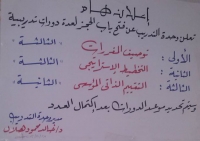 إعلان هام
تعلن وحدة التدريب عن فتح باب الحجز لعدة دورات تدريبية
الأولى: توصيف المقررات الثالثة:
الثانية: التخطيط الاستراتيجي الثالثة:
الثالثة: التقييم الذاتي المؤسسي الثانية:
وسيتم تحديد موعد الدورات بعد اكتمال العدد
مدير وحدة التدريب